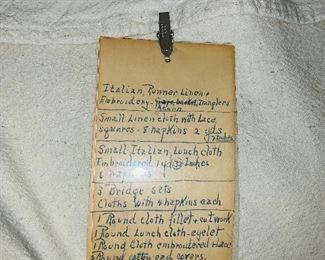 Italian Runner Linen +
Embroidery - Danglers
Small Linen cloth with Lace
squares - 8 napkins 2 yds
Small Italian Lunch cloth
Embroidered 1 yd Inches
6 napkins
3 Bridge sets
Cloths with 4 napkins each
1 Round cloth fillet + cutwork
1 Round Lunch cloth - eyelet
1 Round Cloth embroidered + Lace
Round cotton pad covers.